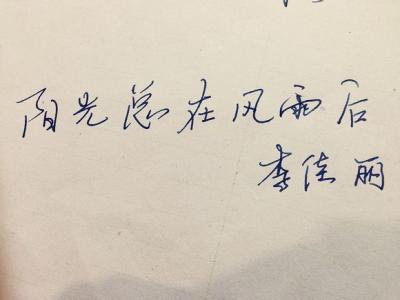 阳光总在风雨后
李佳丽